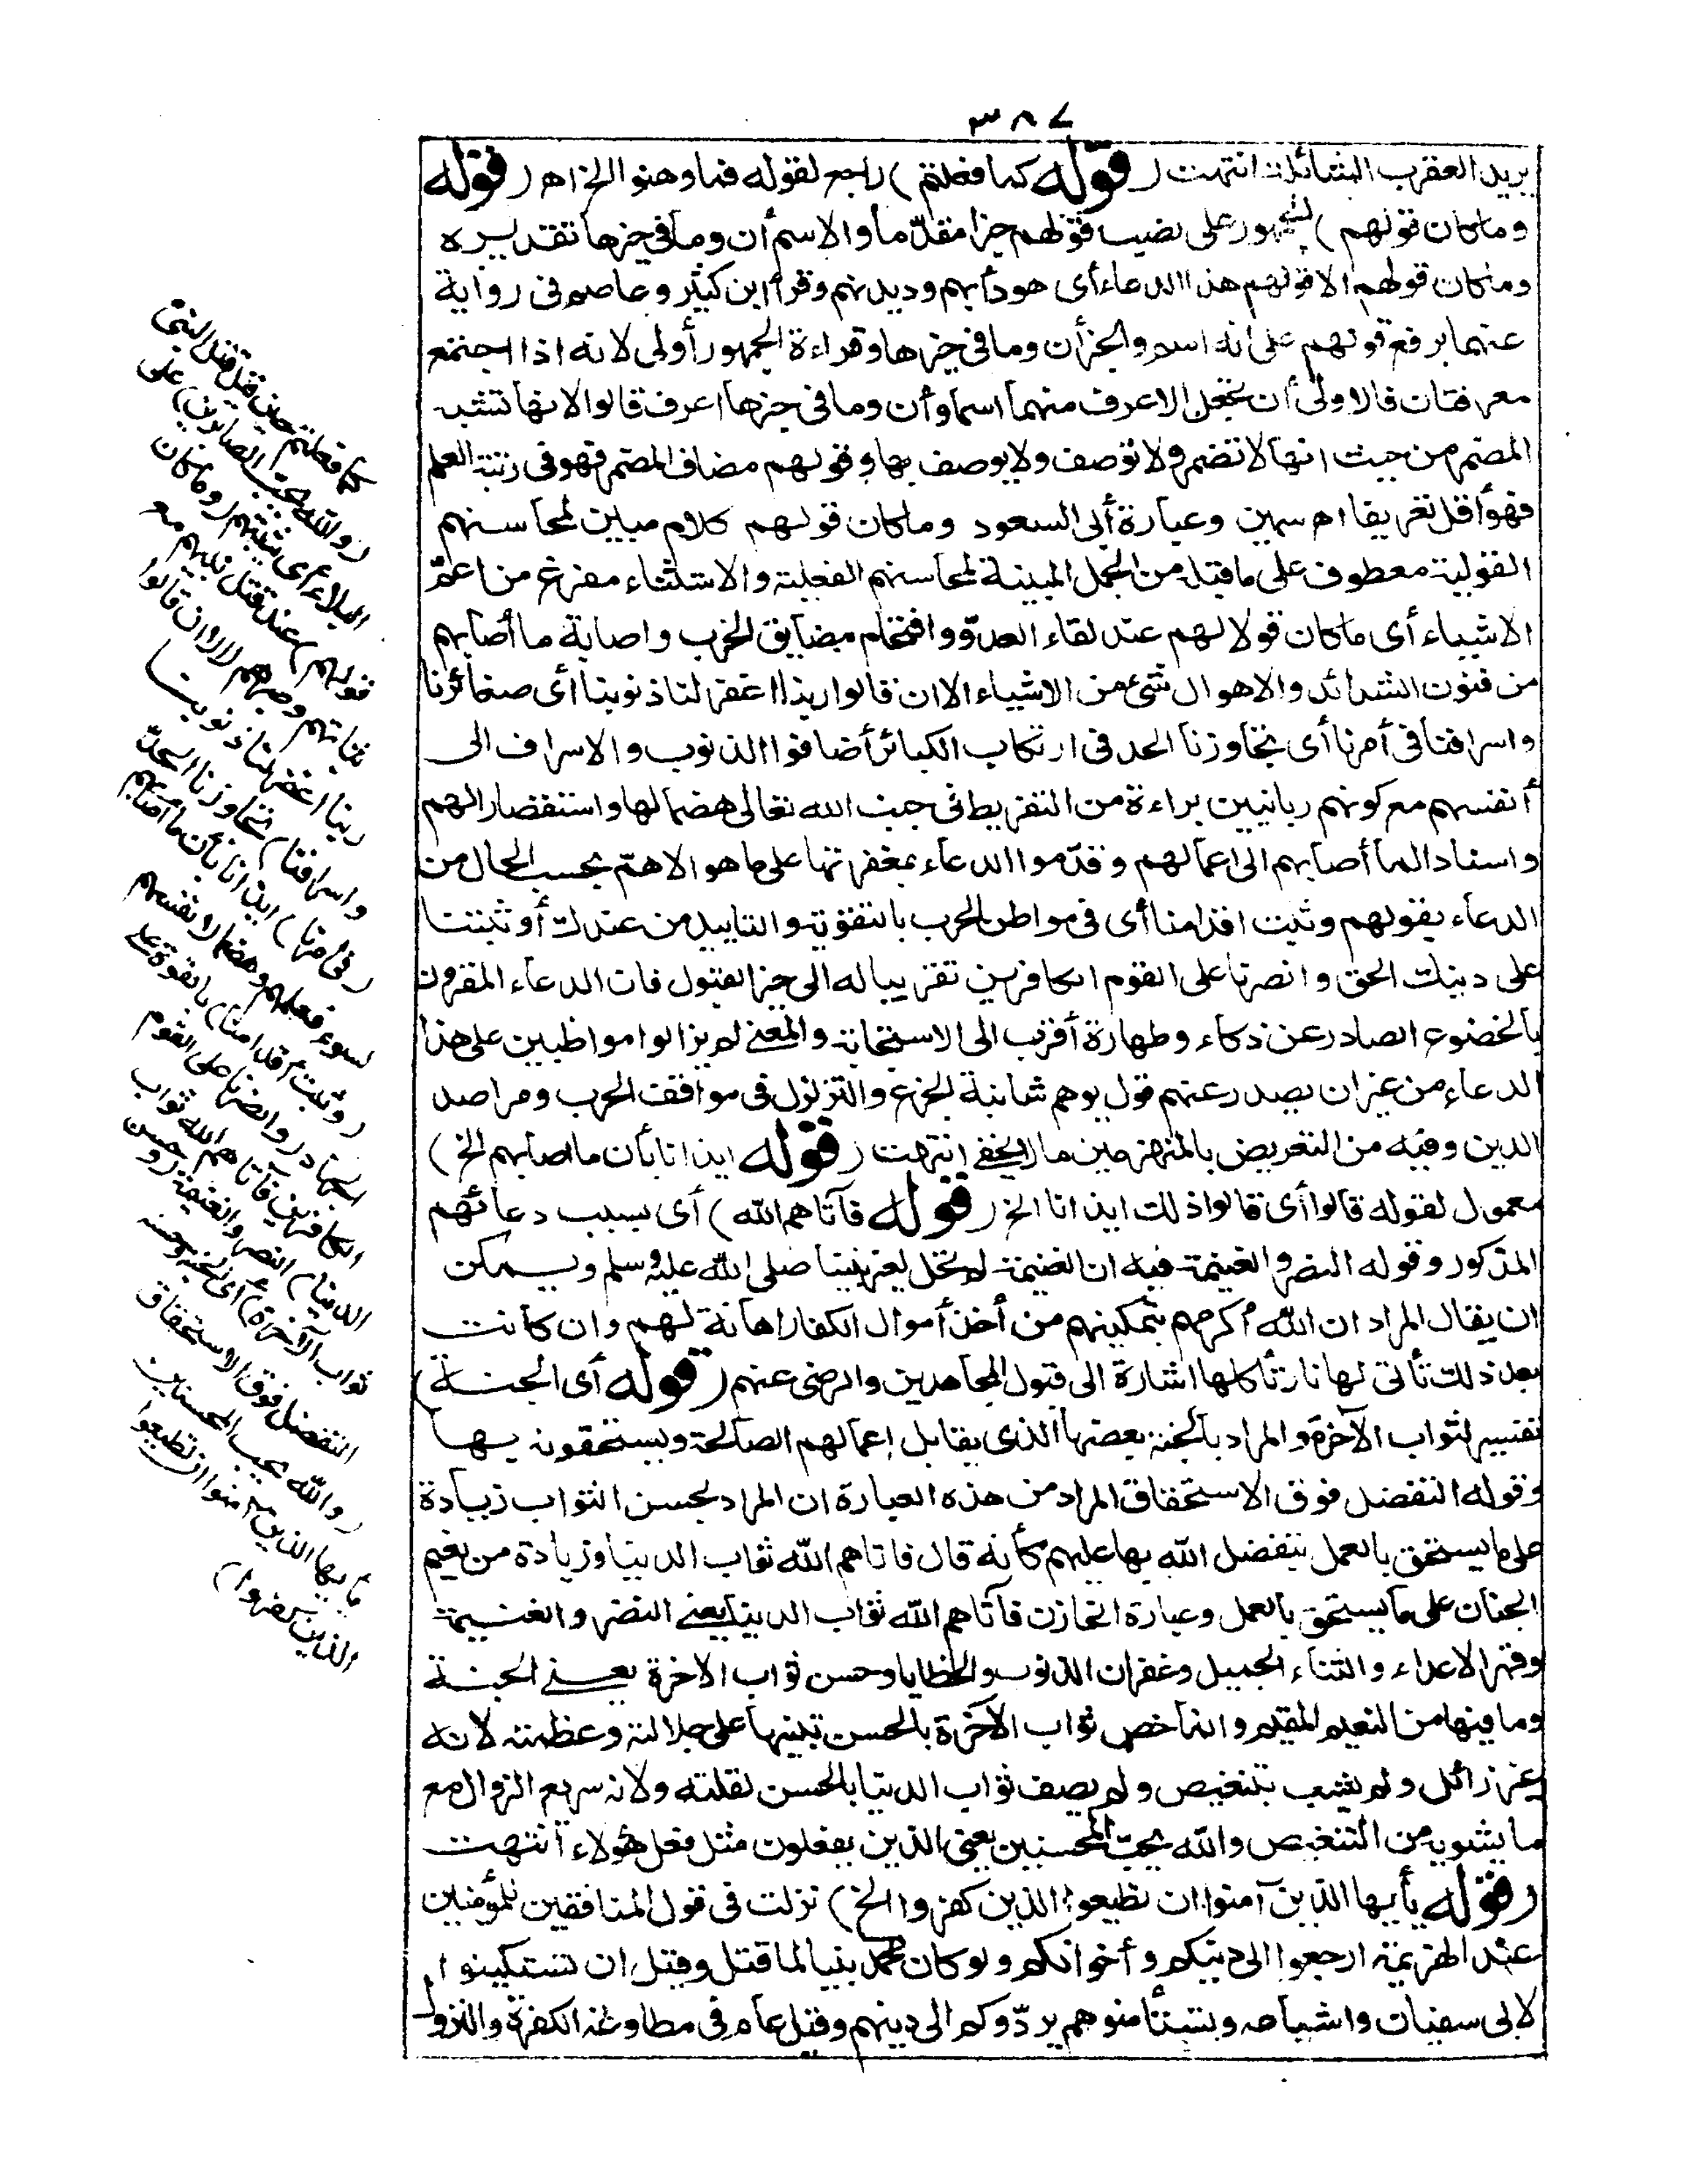 ٣٨٧
يريد العقرب الشائلة انتهت (قوله كما فعلتم) راجع لقوله فما وهنوا الخ اهـ (قوله
وما كان قولهم) الجمهور على نصب قولهم خبرا مقدّما والاسم أن وما في حيزها تقديره
وما كان قولهم الا قولهم هذا الدعاء أى هو دأبهم وديدنهم وقرأ ابن كثير وعاصم فى رواية
عنهما برفع قولهم على انه اسم والخبر أن وما فى حيزها وقراءة الجمهور أولى لانه اذا اجتمع
معرفتان فالاولى أن تجعل الاعرف منهما اسما وأن وما فى حيزها اعرف قالوا لانها تشبه
المضمر من حيث انها لا تضمر ولا توصف ولا يوصف بها وقولهم مضاف للمضمر فهو فى رتبة العلم
فهو أقل تعريفا اهـ سمين وعبارة أبى السعود وما كان قولهم كلام مبين لمحاسنهم
القولية معطوف على ما قبله من الجمل المبينة لمحاسنهم الفعلية والاستثناء مفرغ من اعمّ
الاشياء أى ما كان قولا لهم عند لقاء العدوّ واقتحام مضايق الحرب واصابة ما أصابهم
من فنون الشدائد والاهوال شئ من الاشياء الا ان قالوا ربنا اغفر لنا ذنوبنا أى صغائرنا
واسرافنا فى أمرنا أى تجاوزنا الحد فى ارتكاب الكبائر أضافوا الذنوب والاسراف الى
أنفسهم مع كونهم ربانيين براءة من التفريط فى جنب الله تعالى هضما لها واستقصارا لهم
واسنادا لما أصابهم الى اعمالهم وقدّموا الدعاء بمغفرتها على ما هو الاهمّ بحسب الحال من
الدعاء بقولهم وثبت اقدامنا أى فى مواطن الحرب بالتقوية والتاييد من عندك أو ثبتنا
على دينك الحق وانصرنا على القوم الكافرين تقريبا له الى حيز القبول فان الدعاء المقرون
بالخضوع الصادر عن ذكاء وطهارة أقرب الى الاستجابة والمعنى لم يزالوا مواظبين على هذا
الدعاء من غير ان يصدر عنهم قول يوهم شائبة الجزع والتزلزل فى مواقف الحرب ومراصد
الدين وفيه من التعريض بالمنهزمين ما لا يخفى انتهت (قوله ايذانا بأن ما أصابهم الخ)
معمول لقوله قالوا أى قالوا ذلك ايذانا الخ (قوله فآتاهم الله) أى بسبب دعائهم
المذكور وقوله النصر والغنيمة فيه ان الغنيمة لم تحل لغير نبينا صلى الله عليه وسلم ويمكن
ان يقال المراد ان الله أكرمهم بتمكينهم من أخذ أموال الكفار اهانة لهم وان كانت
بعد ذلك تأتى لها نار تأكلها اشارة الى قبول المجاهدين والرضى عنهم (قوله أى الجنة)
تفسير لثواب الآخرة والمراد بالجنة بعضها الذى يقابل اعمالهم الصالحة ويستحقونه بها
وقوله التفضل فوق الاستحقاق المراد من هذه العبارة ان المراد بحسن الثواب زيادة
على ما يستحق بالعمل يتفضل الله بها عليهم كأنه قال فاتاهم الله ثواب الدنيا وزيادة من نعيم
الجنان على ما يستحق بالعمل وعبارة الخازن فآتاهم الله ثواب الدنيا يعنى النصر والغنيمة
وقهر الاعداء والثناء الجميل وغفران الذنوب والخطايا وحسن ثواب الآخرة يعنى الجنة
وما فيها من النعيم المقيم وانما خص ثواب الآخرة بالحسن تنبيها على جلالته وعظمته لانه
غير زائل ولم يشب بتنغيص ولم يصف ثواب الدنيا بالحسن لقلته ولانه سريع الزوال مع
ما يشوبه من التنغيص والله يحبّ المحسنين يعنى الذين يفعلون مثل فعل هؤلاء انتهت
(قوله يأيها الذين آمنوا ان تطيعوا الذين كفروا الخ) نزلت فى قول المنافقين للمؤمنين
عند الهزيمة ارجعوا الى دينكم وأخوانكم ولو كان محمد نبيا لما قتل وقيل ان تستكينوا
لابى سفيان واشياعه وتستأمنوهم يردّوكم الى دينهم وقيل عام فى مطاوعة الكفرة والنزول
كما فعلتم حين قيل قتل النبىّ
(والله يحب الصابرين) على
البلاء أى يثيبهم (وما كان
قولهم) عند قتل نبيهم مع
ثباتهم وصبرهم (الا ان قالوا
ربنا اغفر لنا ذنوبنا
واسرافنا) تجاوزنا الحدّ
(فى أمرنا) ايذانا بأن ما أصابهم
لسوء فعلهم وهضما لانفسهم
(وثبت أقدامنا) بالقوة على
الجهاد (وانصرنا على القوم
الكافرين فآتاهم الله ثواب
الدنيا) النصر والغنيمة (وحسن
ثواب الآخرة) أى الجنة وحسنه
التفضل فوق الاستحقاق
(والله يحب المحسنين
يأيها الذين آمنوا ان تطيعوا
الذين كفروا)